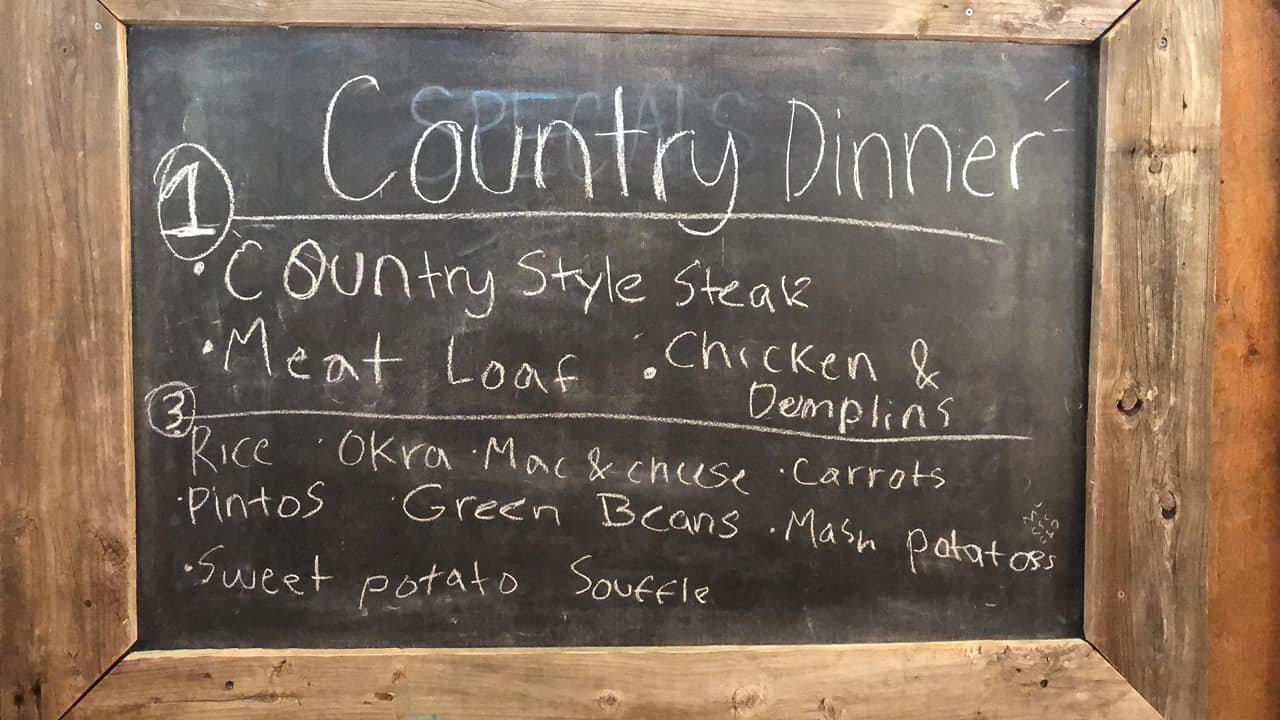 SPECIALS
Country Dinner
1
• Country Style Steak
• Meat Loaf • Chicken &
Demplins
3
Rice · Okra · Mac & cheese · Carrots
· Pintos · Green Beans · Mash potatoes
· Sweet potato Souffle